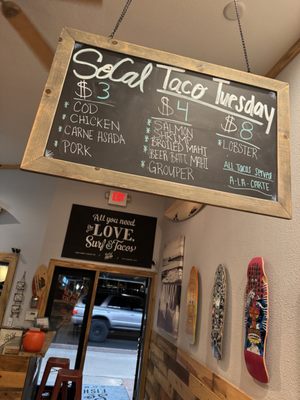 SoCal Taco Tuesday
$3
* COD
* CHICKEN
* CARNE ASADA
* PORK
$4
* SALMON
* SHRIMP
* BROILED MAHI
* BEER BATT. MAHI
* GROUPER
$8
* LOBSTER
ALL TACOS SERVED
A-LA-CARTE
EXIT
All you need
is LOVE,
Surf & Tacos
FISH